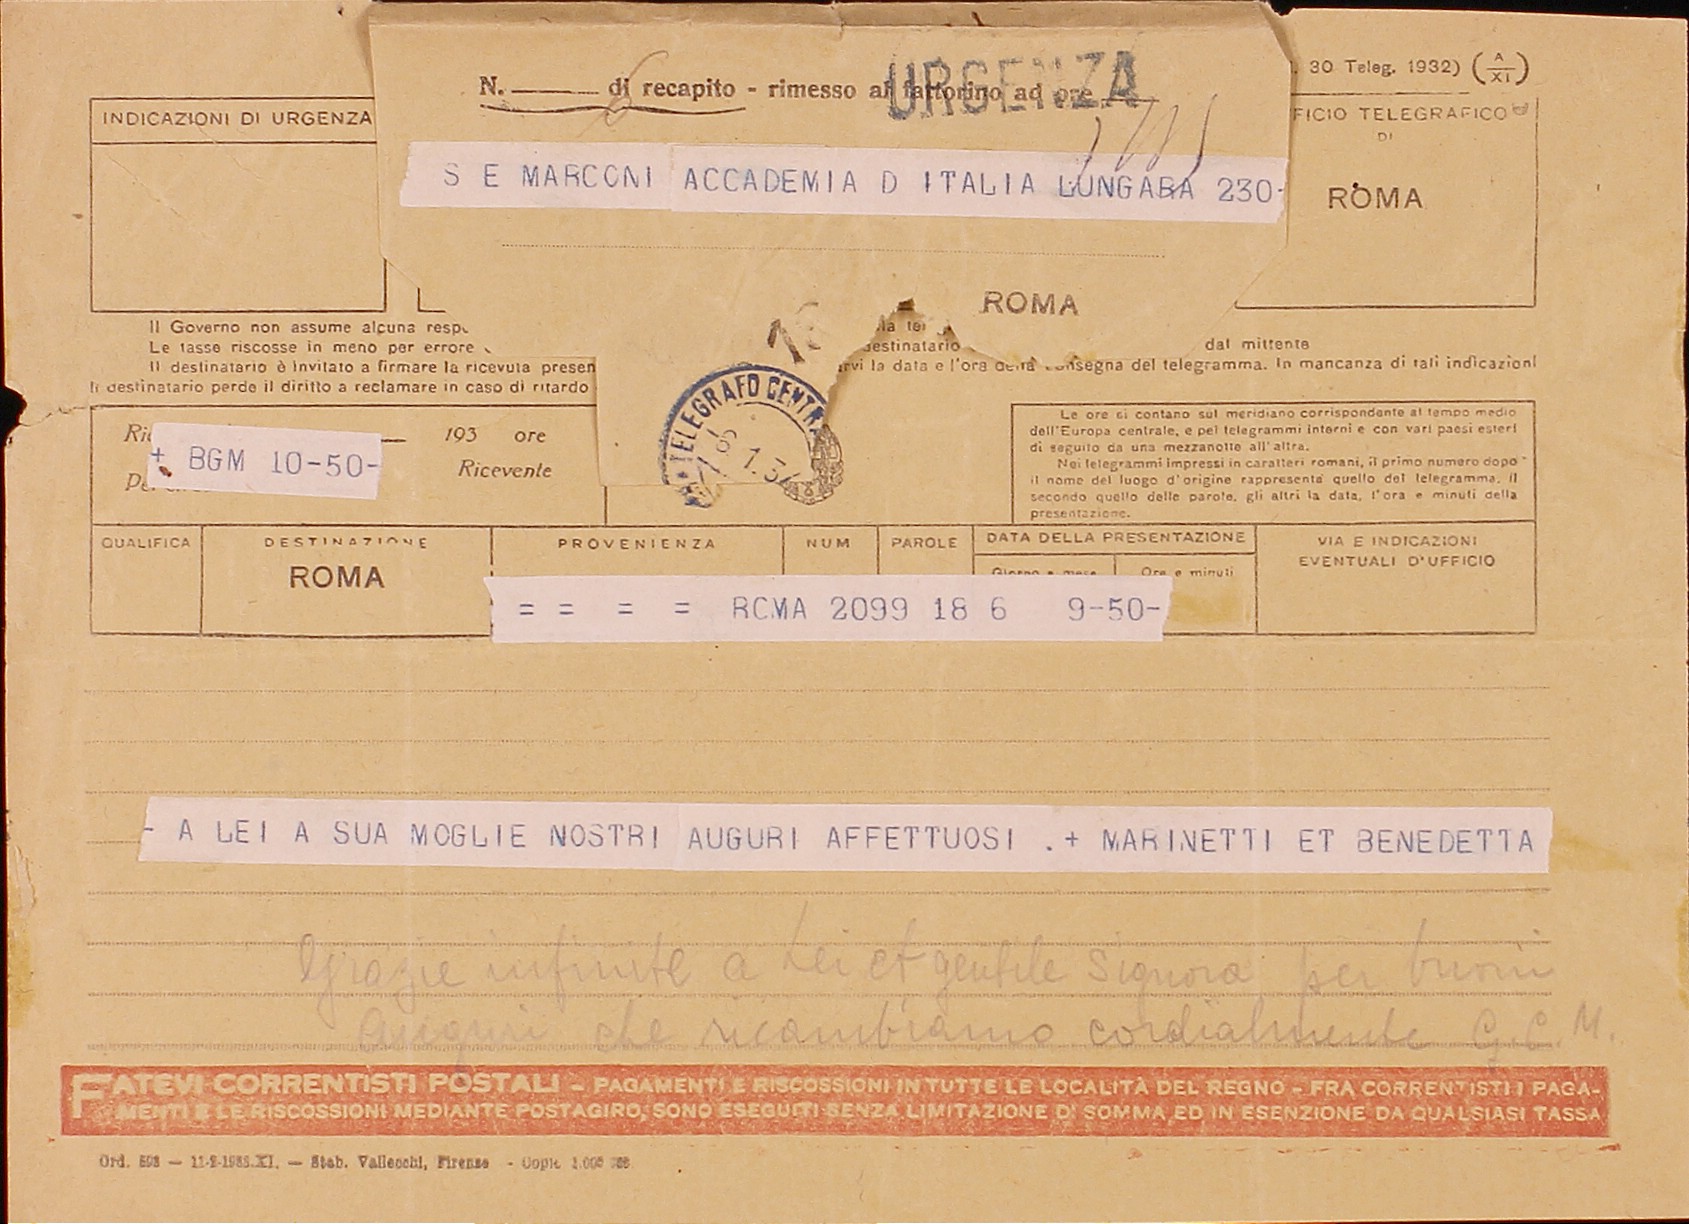 30 Teleg. 1932) (A/XI)
N. di recapito - rimesso al fattorino ad ore
URGENZA
INDICAZIONI DI URGENZA
FICIO TELEGRAFICO
DI
ROMA
S E MARCONI ACCADEMIA D ITALIA LUNGARA 230-
ROMA
Il Governo non assume alcuna resp
Le tasse riscosse in meno per errore
destinatario
dal mittente
Il destinatario è invitato a firmare la ricevuta presen
rvi la data e l'ora della consegna del telegramma. In mancanza di tali indicazioni
il destinatario perde il diritto a reclamare in caso di ritardo
TELEGRAFO CENTRA
1.34
Ric
193 ore
+ BGM 10-50-
Ricevente
Le ore si contano sul meridiano corrispondente al tempo medio
dell'Europa centrale, e pei telegrammi interni e con vari paesi esteri
di seguito da una mezzanotte all'altra.
Nei telegrammi impressi in caratteri romani, il primo numero dopo
il nome del luogo d'origine rappresenta quello del telegramma, il
secondo quello delle parole, gli altri la data, l'ora e minuti della
presentazione.
QUALIFICA
DESTINAZIONE
PROVENIENZA
NUM
PAROLE
DATA DELLA PRESENTAZIONE
VIA E INDICAZIONI
EVENTUALI D'UFFICIO
Giorno e mese
Ore e minuti
ROMA
= = = = RCMA 2099 18 6 9-50-
- A LEI A SUA MOGLIE NOSTRI AUGURI AFFETTUOSI .+ MARINETTI ET BENEDETTA
Grazie infinite a Lei et gentile Signora per buoni
auguri che ricambiamo cordialmente G. C. M.
FATEVI CORRENTISTI POSTALI - PAGAMENTI E RISCOSSIONI IN TUTTE LE LOCALITÀ DEL REGNO - FRA CORRENTISTI I PAGA-
MENTI E LE RISCOSSIONI MEDIANTE POSTAGIRO, SONO ESEGUITI SENZA LIMITAZIONE DI SOMMA ED IN ESENZIONE DA QUALSIASI TASSA
Ord. - Stab. Vallecchi, Firenze - Copie